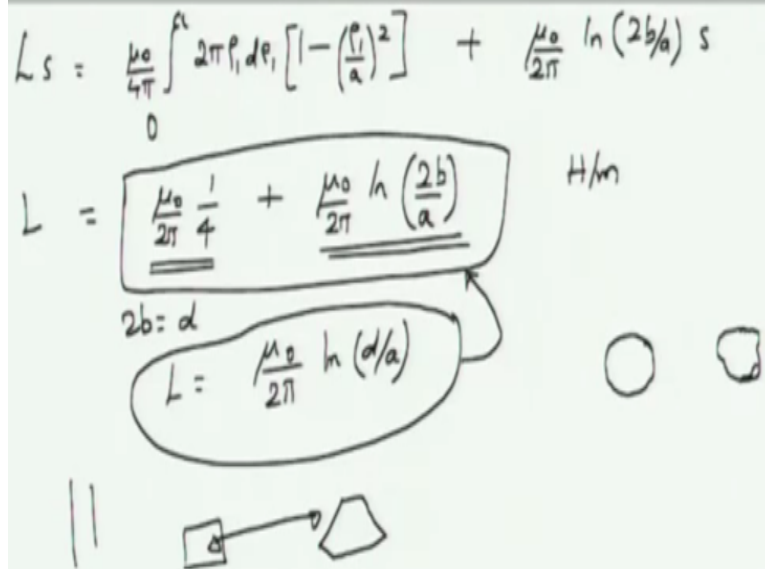 Ls = μ0/4π ∫0^a 2πρ1 dρ1 [1 - (ρ1/a)^2] + μ0/2π ln (2b/a) s
L = μ0/2π 1/4 + μ0/2π ln (2b/a) H/m
2b = d
L = μ0/2π ln (d/a)